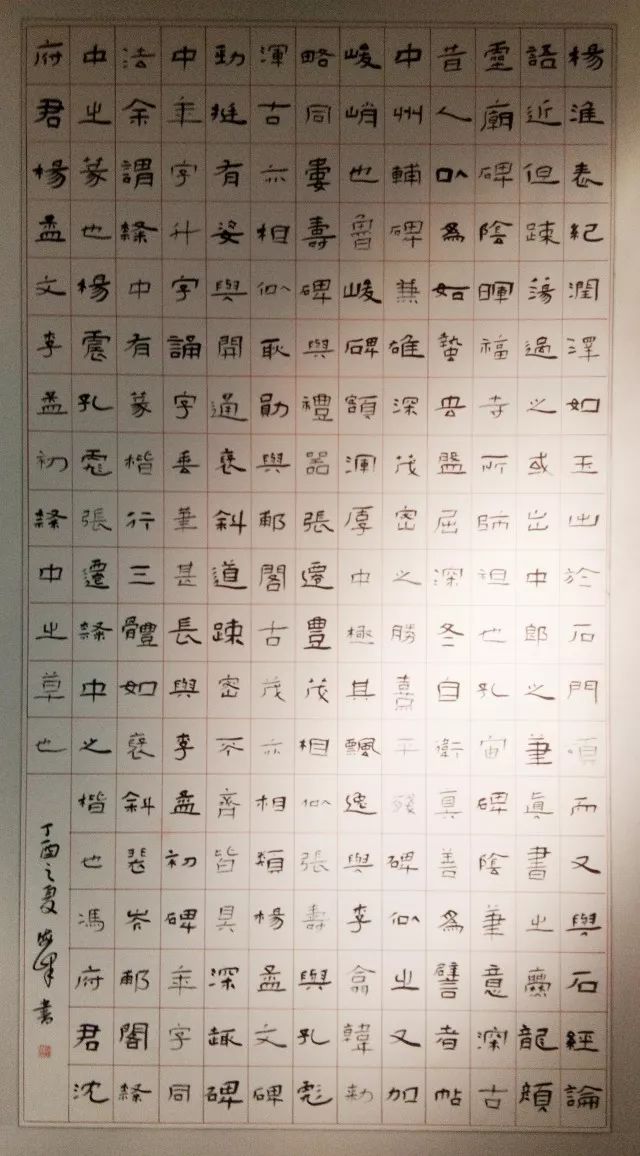 楊淮表紀潤澤如玉出於石門頌而又與石經論
語近但踈蕩過之或出中郎之筆眞書之爨龍顏
靈廟碑陰暉福寺所師祖也孔宙碑陰筆意深古
昔人以為如蟄虫盤屈深冬自衛真善為譬者帖
中州輔碑兼雄深茂密之勝熹平殘碑似之又加
峻峭也魯峻碑額渾厚中極其飄逸與李翕韓勑
略同婁壽碑與禮器張遷豊茂相似張壽與孔彪
渾古亦相似耿勛與郙閣古茂亦相類楊孟文碑
勁挺有姿與開通褒斜道踈密不齊皆具深趣碑
中年字升字誦字垂筆甚長與李孟初碑年字同
法余謂隸中有篆楷行三體如褒斜裴岑郙閣隸
中之篆也楊震孔彪張遷隸中之楷也馮府君沈
府君楊孟文李孟初隸中之草也
丁酉之夏 書